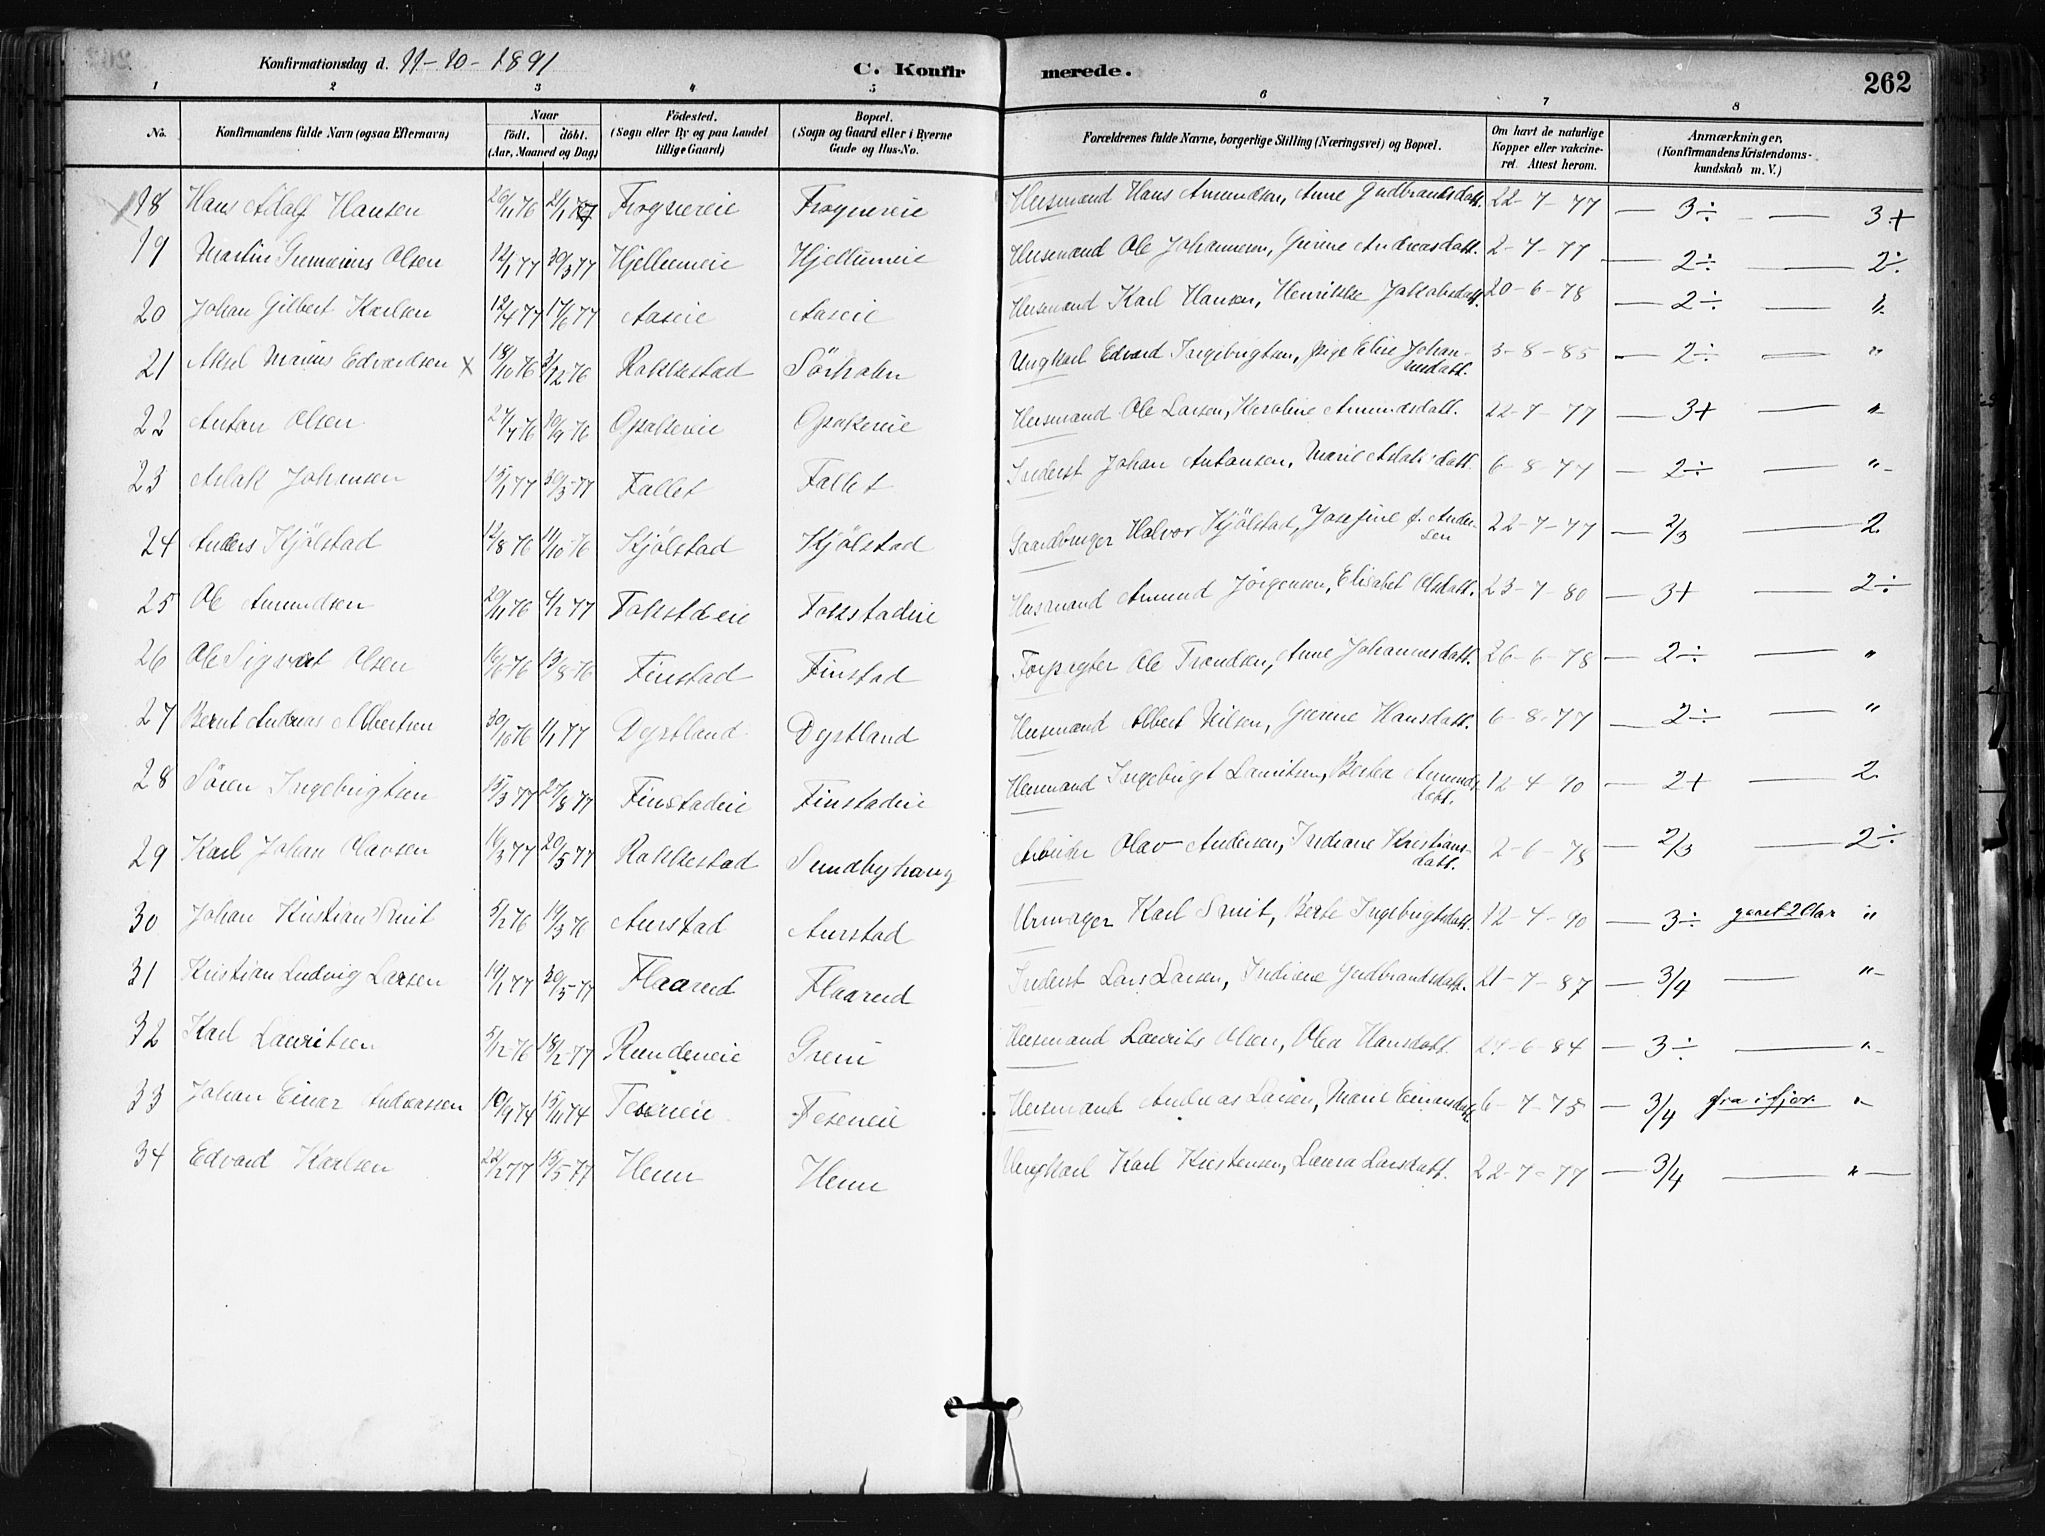 Konfirmationsdag d. 11-10-1891 C. Konfirmerede. 262
1 2 3 4 5 6 7 8
No. Konfirmandens fulde Navn (ogsaa Efternavn) Naar født. døbt. (Aar, Maaned og Dag) Fødested. (Sogn eller By og paa Landet tillige Gaard) Bopæl. (Sogn og Gaard eller i Byerne Gade og Hus-No. Forældrenes fulde Navne, borgerlige Stilling (Næringsvei) og Bopæl. Om havt de naturlige Kopper eller vakcineret. Attest herom. Anmærkninger, (Konfirmandens Kristendomskundskab m. V.)
18 Hans Adolf Hansen 20/11 76 21/1 77 Frognereie Frognereie Husmand Hans Amundsen, Anne Gudbrandsdatt. 22-7-77 — 3÷ — 3+
19 Martin Olsen 12/1 77 30/3 77 Hjellumeie Hjellumeie Husmand Ole Johannesen, Gurine Andreasdatt. 2-7-77 — 2÷ — 2÷
20 Johan Gilbert Karlsen 12/4 77 17/6 77 Aaseie Aaseie Husmand Karl Hansen, Henrikke Jakobsdatt. 20-6-78 — 2÷ — "
21 Aksel Marius Edvardsen x 18/10 76 3/12 76 Rakkestad Sørhalen Ungkarl Edvard Ingebrigtsen, pige Elise Johansendatt. 3-8-85 - 2÷ — "
22 Anton Olsen 27/7 76 10/9 76 Opsakereie Opsakereie Husmand Ole Larsen, Karoline Amundsdatt. 22-7-77 — 3+ — "
23 Aslak Johansen 15/1 77 30/3 77 Fallet Fallet Inderst Johan Antonsen, Marie Aslaksdatt. 6-8-77 — 2÷ — "
24 Anders Kjølstad 12/8 76 11/10 76 Kjølstad Kjølstad Gaardbruger Halvor Kjølstad, Josefine f. Andersen 22-7-77 — 2/3 — 2
25 Ole Amundsen 29/11 76 4/2 77 Fakstadeie Fakstadeie Husmand Amund Jørgensen, Elisabet Olsdatt. 23-7-80 — 3+ — 2÷
26 Ole Sigvart Olsen 16/6 76 13/8 76 Finstad Finstad Forpagter Ole Trondsen, Anne Johannesdatt. 26-6-78 — 2÷ — "
27 Bernt Andreas Albertsen 30/10 76 1/1 77 Dystland Dystland Husmand Albert Nilsen, Gurine Hansdatt. 6-8-77 — 2÷ — "
28 Søren Ingebrigtsen 15/3 77 27/8 77 Finstadeie Finstadeie Husmand Ingebrigt Lauritsen, Bertea Amundsdatt. 12-4-90 — 2+ — 2
29 Karl Johan Olavsen 16/3 77 20/5 77 Rakkestad Sundbyhaug Arbeider Olav Andersen, Indiane Kristiansdatt. 2-6-78 — 2/3 — 2÷
30 Johan Kristian Smit 5/2 76 19/3 76 Aurstad Aurstad Urmager Karl Smit, Berte Ingebrigtsdatt. 12-4-90 — 3÷ gaaet 2 Aar "
31 Kristian Ludvig Larsen 19/1 77 20/5 77 Flaarud Flaarud Inderst Lars Larsen, Indiane Gudbrandsdatt. 21-7-87 — 3/4 — "
32 Karl Lauritsen 5/12 76 18/2 77 Rundeneie Greni Husmand Laurits Olsen, Olea Hansdatt. 24-6-84 — 3÷ — "
33 Johan Einar Andreassen 10/9 74 15/11 74 Foseneie Husmand Andreas Larsen, Marie Einarsdatt. 6-7-75 — 3/4 fra i fjor "
34 Edvard Karlsen 22/2 77 13/5 77 Henn Henn Ungkarl Karl Kristensen, Laura Larsdatt. 22-7-77 — 3/4 — "